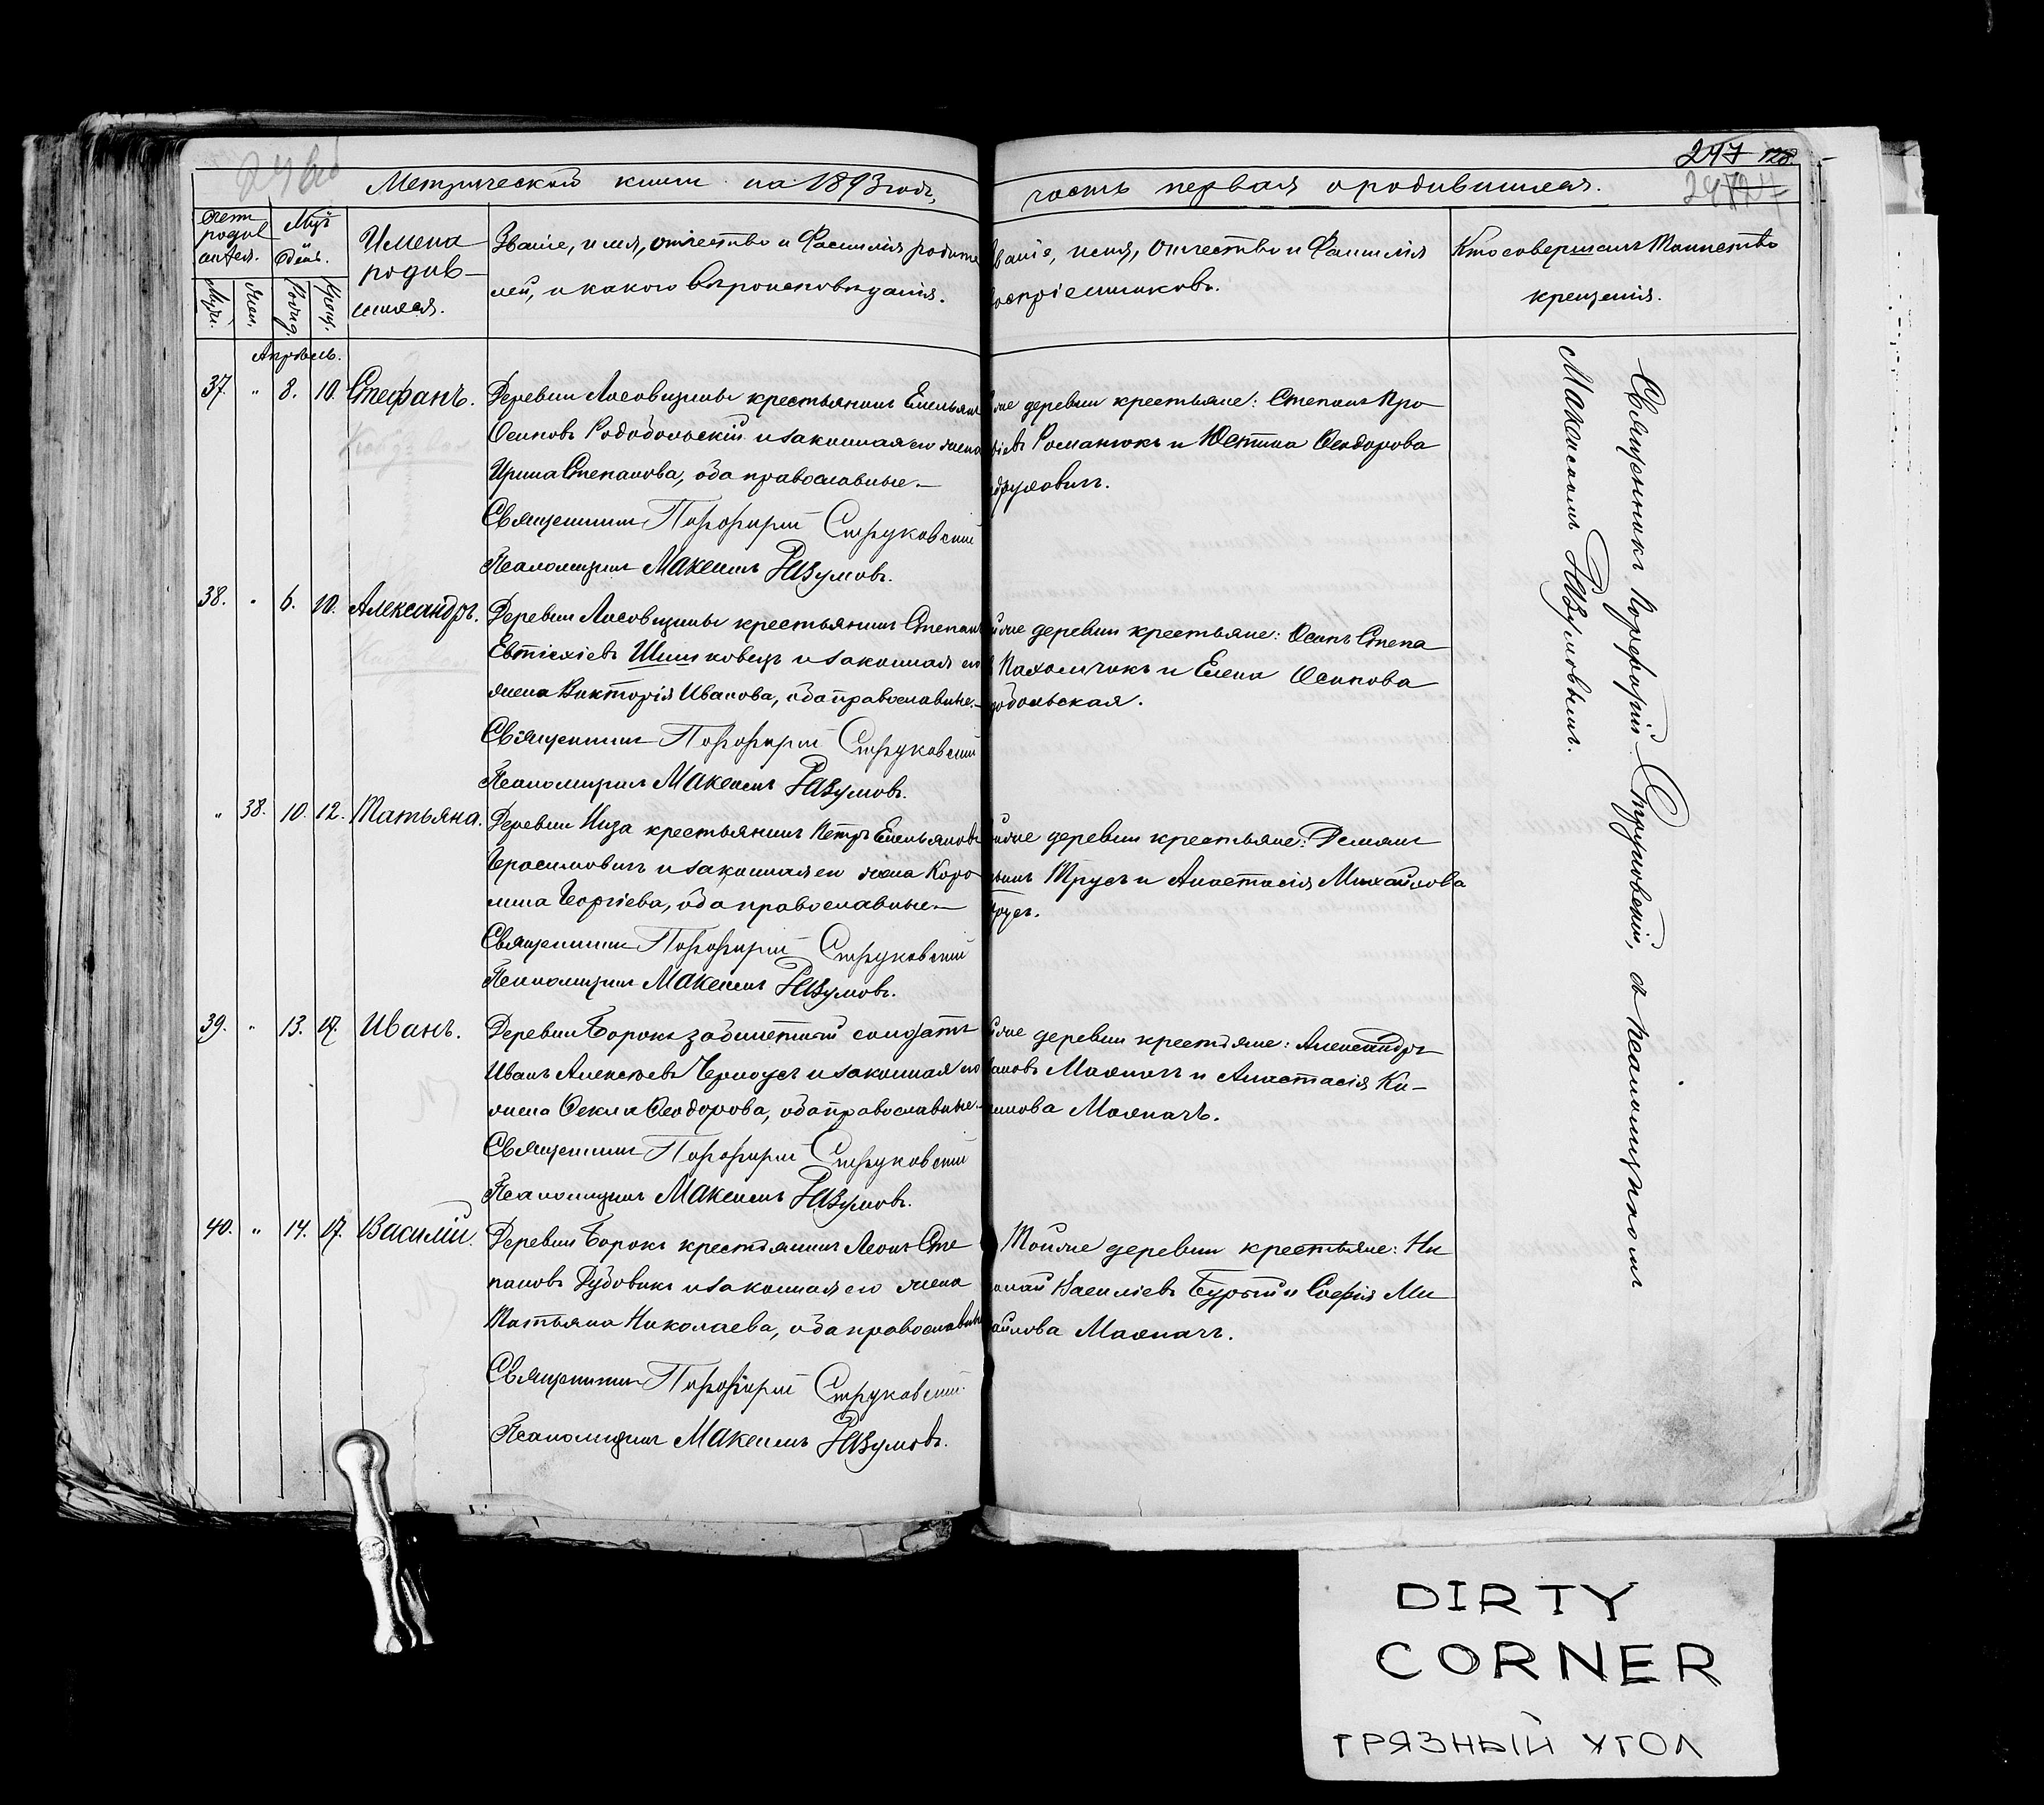 247 128
Метрической книги на 1893 годъ,
часть первая о родившихся.
Счетъ родив
шихся.
Муж.
Жен.
день.
Рожд.
Крещ.
Имена
родив-
шихся.
Званіе, имя, отчество и Фамилія родите
лей, и какого вѣроисповѣданія.
Званіе, имя, отчество и Фамилія
воспріемниковъ.
Кто совершалъ Таинство
крещенія.
Апрѣль.
37. " 8. 10. Стефанъ.
Деревни Лясовщины крестьянинъ Емельянъ
Осиповъ Радобольскій и законная его жена
Ирина Степанова, оба православные.—
Священникъ Порфирій Струковскій
Псаломщикъ Максимъ Разумовъ.
деревни крестьяне: Степанъ Про
Романюкъ и Юстина Ѳеодорова
38. " 6. 10. Александръ.
Деревни Лясовщины крестьянинъ Степанъ
Евтихіевъ Шишковецъ и законная его
жена Викторія Иванова, оба православные.—
Священникъ Порфирій Струковскій
Псаломщикъ Максимъ Разумовъ.
деревни крестьяне: Осипъ Степа
Пахомчикъ и Елена Осипова
добольская.
" 38. 10. 12. Татьяна.
Деревни Низа крестьянинъ Петръ Емельяновъ
Герасимовичъ и законная его жена Каро
лина Георгіева, оба православные.—
Священникъ Порфирій Струковскій
Псаломщикъ Максимъ Разумовъ.
деревни крестьяне: Демьянъ
Трусъ и Анастасія Михайлова
Трусъ.
39. " 13. 17. Иванъ.
Деревни Борокъ забилетный солдатъ
Иванъ Алексѣевъ Черноусъ и законная его
жена Ѳекла Ѳеодорова, оба православные.—
Священникъ Порфирій Струковскій
Псаломщикъ Максимъ Разумовъ.
деревни крестьяне: Александръ
Малячъ и Анастасія Ки-
Малячъ.
40. " 14. 17. Василій.
Деревни Борокъ крестьянинъ Леонъ Сте
пановъ Дубовикъ и законная его жена
Татьяна Николаева, оба православные
Священникъ Порфирій Струковскій
Псаломщикъ Максимъ Разумовъ.
Тойже деревни крестьяне: Ни
колай Василіевъ и Софія Ми
хайлова
Священникъ Порфирій Струковскій, съ псаломщикомъ
Максимомъ Разумовымъ.
DIRTY
CORNER
ГРЯЗНЫЙ УГОЛ